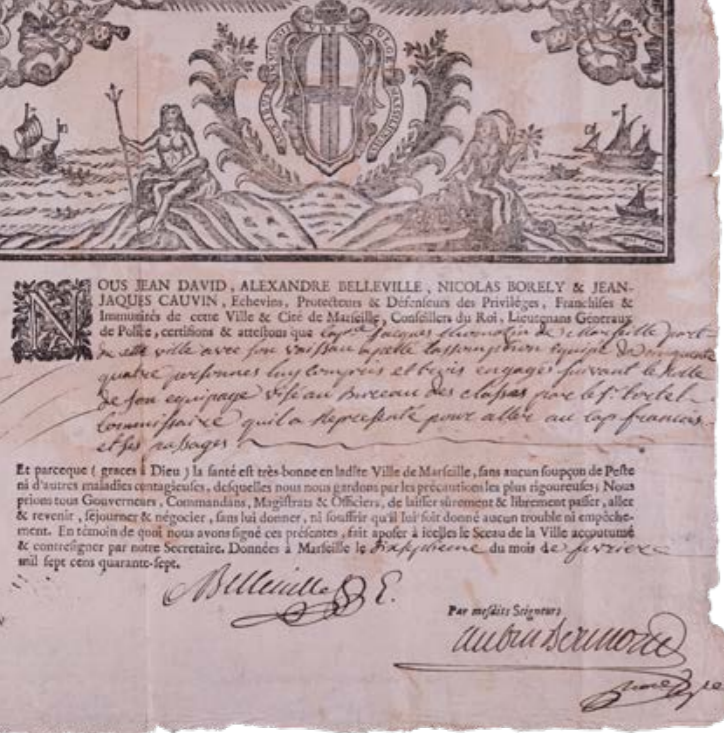 NOUS JEAN DAVID, ALEXANDRE BELLEVILLE, NICOLAS BORELY & JEAN-
JAQUES CAUVIN, Echevins, Protecteurs & Défenseurs des Privilèges, Franchises &
Immunités de cette Ville & Cité de Marseille, Conseillers du Roi, Lieutenans Généraux
de Police, certifions & attestons que Jacques de Marseille part
de cette ville avec son vaisseau apellé lassomption équipé de cinquante
quatre personnes luy compris et trois engagés suivant le Rolle
de son equipage visé au Bureau des classes par le Sr.
Commissaire qu'il a Représenté pour aller au cap francois
et ses passages
Et parceque ( graces à Dieu ) la santé est très-bonne en ladite Ville de Marseille, sans aucun soupçon de Peste
ni d'autres maladies contagieuses, desquelles nous nous gardons par les précautions les plus rigoureuses; Nous
prions tous Gouverneurs, Commandans, Magistrats & Officiers, de laisser sûrement & librement passer, aller
& revenir, séjourner & négocier, sans lui donner, ni souffrir qu'il lui soit donné aucun trouble ni empêche-
ment. En témoin de quoi nous avons signé ces présentes, fait aposer à icelles le Sceau de la Ville accoutumé
& contresigner par notre Secretaire. Données à Marseille le dixseptieme du mois de fevrier
mil sept cens quarante-sept.
Belleville E.
Par mesdits Seigneurs